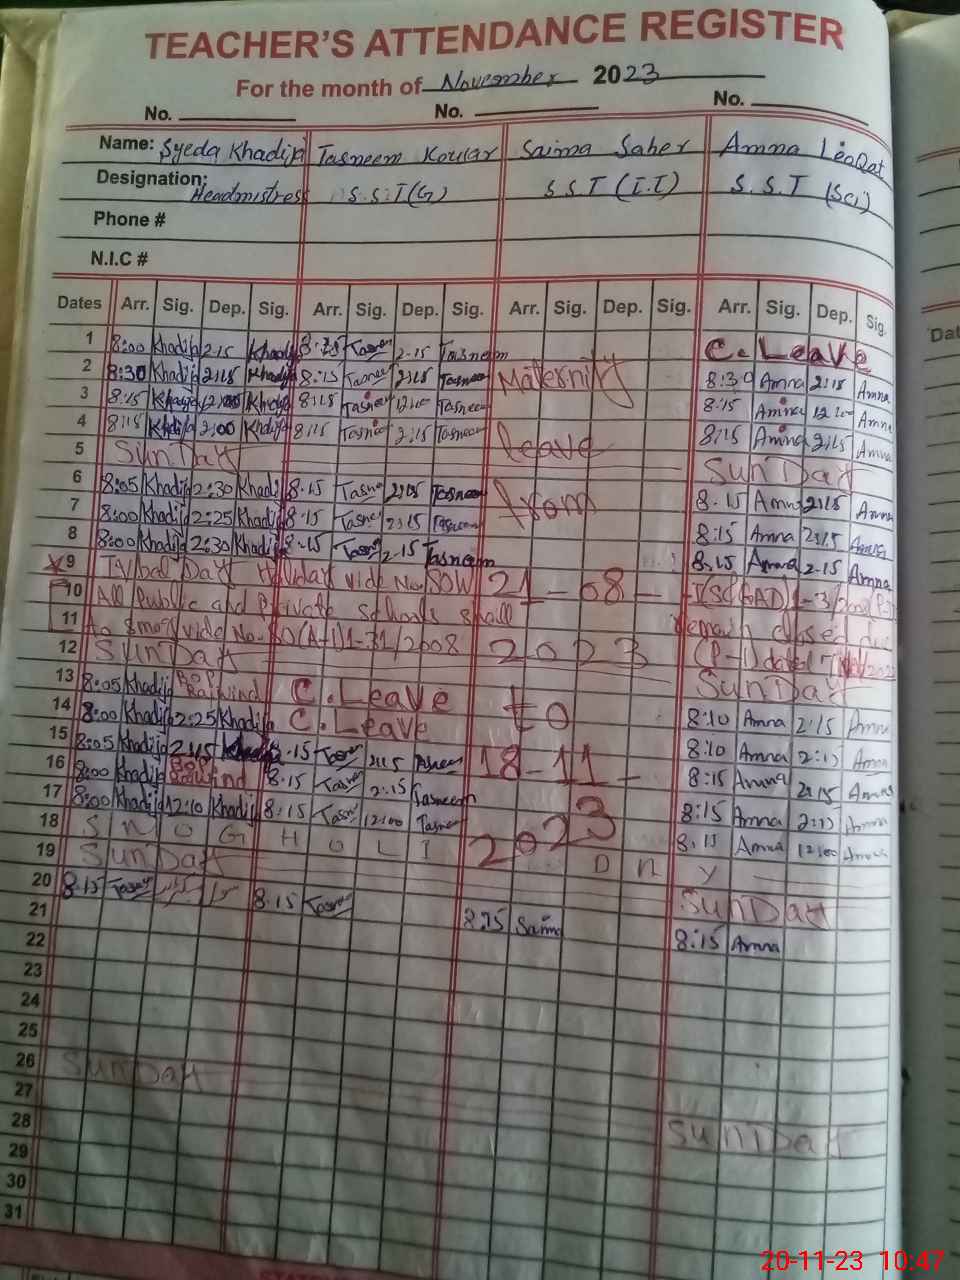 TEACHER'S ATTENDANCE REGISTER
For the month of November 2023
No. No. No.
Name: Syeda Khadija Tasneem Kousar Saima Saher Amna LiaQat
Designation: Headmistress S.S.T(G) S.S.T (I.T) S.S.T (Sci)
Phone #
N.I.C #
Dates Arr. Sig. Dep. Sig. Arr. Sig. Dep. Sig. Arr. Sig. Dep. Sig. Arr. Sig. Dep. Sig.
1 8:00 Khadija 2:15 Khadija Tasneem 2:15 Tasneem C. Leave
2 8:30 Khadija 2:15 Khadija 8:15 Tasneem 2:15 Tasneem Maternity 8:30 Amna 2:15 Amna
3 8:15 Khadija 12:00 Khadija 8:15 Tasneem 12:00 Tasneem 8:15 Amna 12:00 Amna
4 8:15 Khadija 2:00 Khadija 8:15 Tasneem 2:15 Tasneem leave 8:15 Amna 2:15 Amna
5 SunDay SunDay
6 8:05 Khadija 2:30 Khadija 8:15 Tasneem 2:15 Tasneem from 8:15 Amna 2:15 Amna
7 8:00 Khadija 2:25 Khadija 8:15 Tasneem 2:15 Tasneem 8:15 Amna 2:15 Amna
8 8:00 Khadija 2:30 Khadija 8:15 Tasneem 2:15 Tasneem 8:15 Amna 2:15 Amna
9 Iqbal Day Holiday vide No. SOW 21-08-
10 All Public and Private schools shall remain closed due
11 to smog vide No. SO(A-I)1-31/2008 2023
12 SunDay SunDay
13 8:05 Khadija Raiwind C. Leave to
14 8:00 Khadija 2:25 Khadija C. Leave 8:10 Amna 2:15 Amna
15 8:05 Khadija 2:15 Khadija 8:15 Tasneem 2:15 Tasneem 18-11- 8:10 Amna 2:15 Amna
16 8:00 Khadija Raiwind 8:15 Tasneem 2:15 Tasneem 8:15 Amna 2:15 Amna
17 8:00 Khadija 12:10 Khadija 8:15 Tasneem 12:00 Tasneem 2023 8:15 Amna 2:15 Amna
18 SMOG HOLI DAY 8:15 Amna 12:00 Amna
19 SunDay
20 8:15 Tasneem 8:15 Tasneem SunDay
21 8:15 Saima
22 8:15 Amna
23
24
25
26 SunDay
27
28 SunDay
29
30
31
20-11-23 10:47